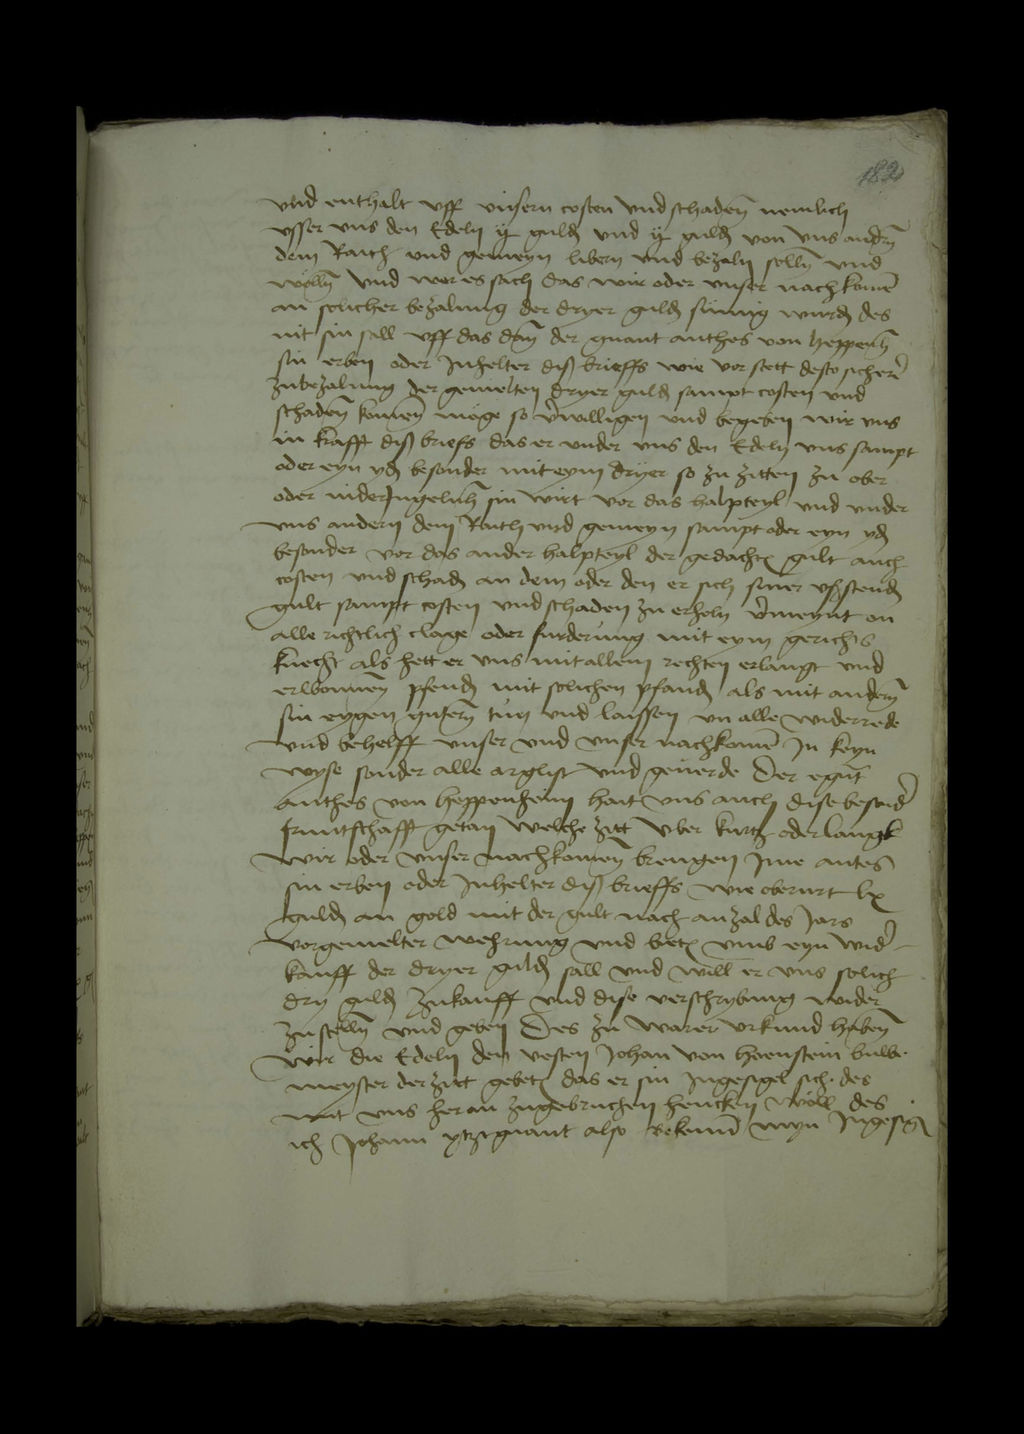 182
vnd enthalt vff vnsern costen vnd schadeñ nemlich
vsser vns den Edeln ij guld vnd ij guld von vns andrñ
dem Raith vnd gemeyn libern vnd bezaln sollñ vnd
wollñ Vnd wer es sach das wir oder vnser nachkomẽ
an solicher bezalung der dryer guld sumig wurd des
nit sin sall vff das dañ der gnant anthes von heppenh
sin erben oder Inhelter diß brieffs wie vor stett desto sicherẽ
zubezalung der gemelten dryer guld sampt costen vnd
schadeñ komeñ moge so v̄willigen vnd begeben wir vns
in krafft diß briefs das er vnder vns den Edeln vns sampt
oder eyn yd besonder mit eym dryer so zu zitten zu ober
oder nider Ingelnh sin wirt vor das halpteyl vnd vnder
vns andern dem Raith vnd gemeyn sampt oder eyn yd
besonder vor das ander halpteyl der gedacht gult auch
costen vnd schad an dem oder den er sich siner vßstend
gult sampt costen vnd schaden zu erholn v̄meynt on
alle richtlich clage oder furderung mit eym gerichts
knecht als hett er vns mit allem rechten erlangt vnd
erwonneñ pfend mit solichen pfand als mit anderñ
sin eygen guterñ tun vnd laissen vn alle widerrede
vnd behelff vnser vnd vnser nachkomẽ In keyn
wyse sonder alle arglist vnd geuerde Der egnt
anthes von heppenheim hait vns auch dise besondẽ
fruntschafft getan welche zitt vber kurtz oder langk
wir oder vnser nachkomeñ brengen Ime antes
sin erben oder Inhelter diß brieffs wie oberurt lx
guld an gold mit der gult nach anzal des Jars
vorgemelter wehrung vnd biet vmb eyn wid
kauff der dryer guld sall vnd will er vns solich
dry guld zu kauff vnd dise verschrybung wider
zustellñ vnd geben Des zu warer vrkund habeñ
wir die Edeln den vesten Johan von heenstein bulb
meyster der zitt gebet das er sin Ingesigel sich des
mit vns heran zugebruchen hencken wöll des
ich Johann ytzgnant also Bekenñ myn Ingesig